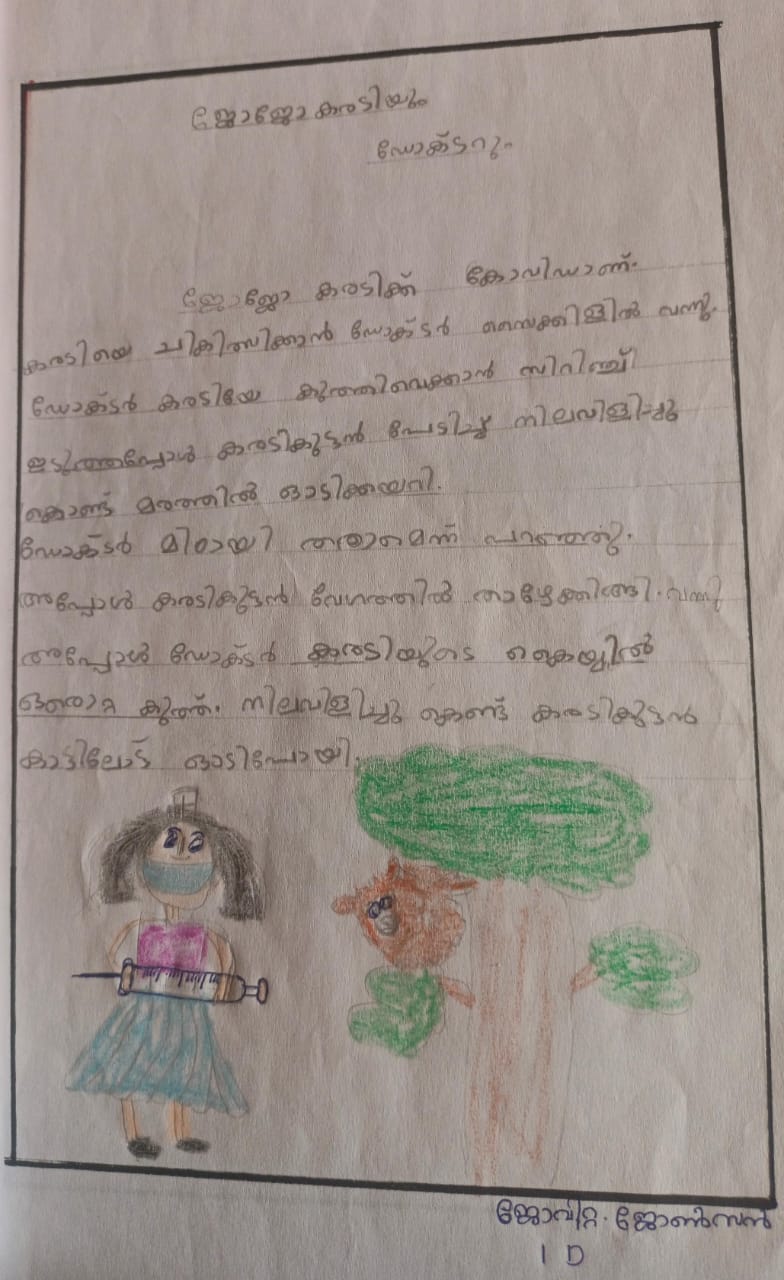 ജോജോ കരടിയും
ഡോക്ടറും
ജോജോ കരടിക്ക് കോവിഡാണ്.
കരടിയെ ചികിത്സിക്കാൻ ഡോക്ടർ സൈക്കിളിൽ വന്നു.
ഡോക്ടർ കരടിയേ കുത്തിവെക്കാൻ സിറിഞ്ച്
എടുത്തപ്പോൾ കരടികുട്ടൻ പേടിച്ച് നിലവിളിച്ചു
കൊണ്ട് മരത്തിൽ ഓടിക്കയറി.
ഡോക്ടർ മിഠായി തരാമെന്ന് പറഞ്ഞു.
അപ്പോൾ കരടികുട്ടൻ വേഗത്തിൽ താഴേക്കിറങ്ങി. വന്നു
അപ്പോൾ ഡോക്ടർ കരടിയുടെ കൈയ്യിൽ
ഒരൊറ്റ കുത്ത്. നിലവിളിച്ചു കൊണ്ട് കരടികുട്ടൻ
കാട്ടിലോട്ട് ഓടിപോയി.
ജോവിറ്റ. ജോൺസൻ
I D